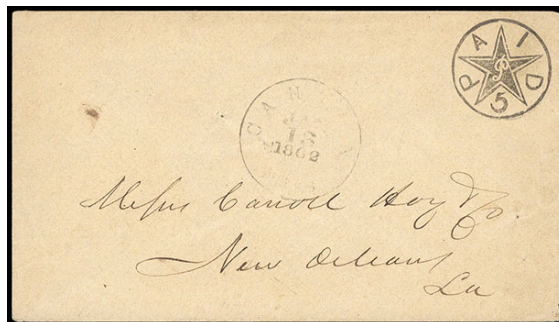 PAID
P
5
CANTON
JAN
15
1862
Messrs Carroll Hoy & Co.
New Orleans
La